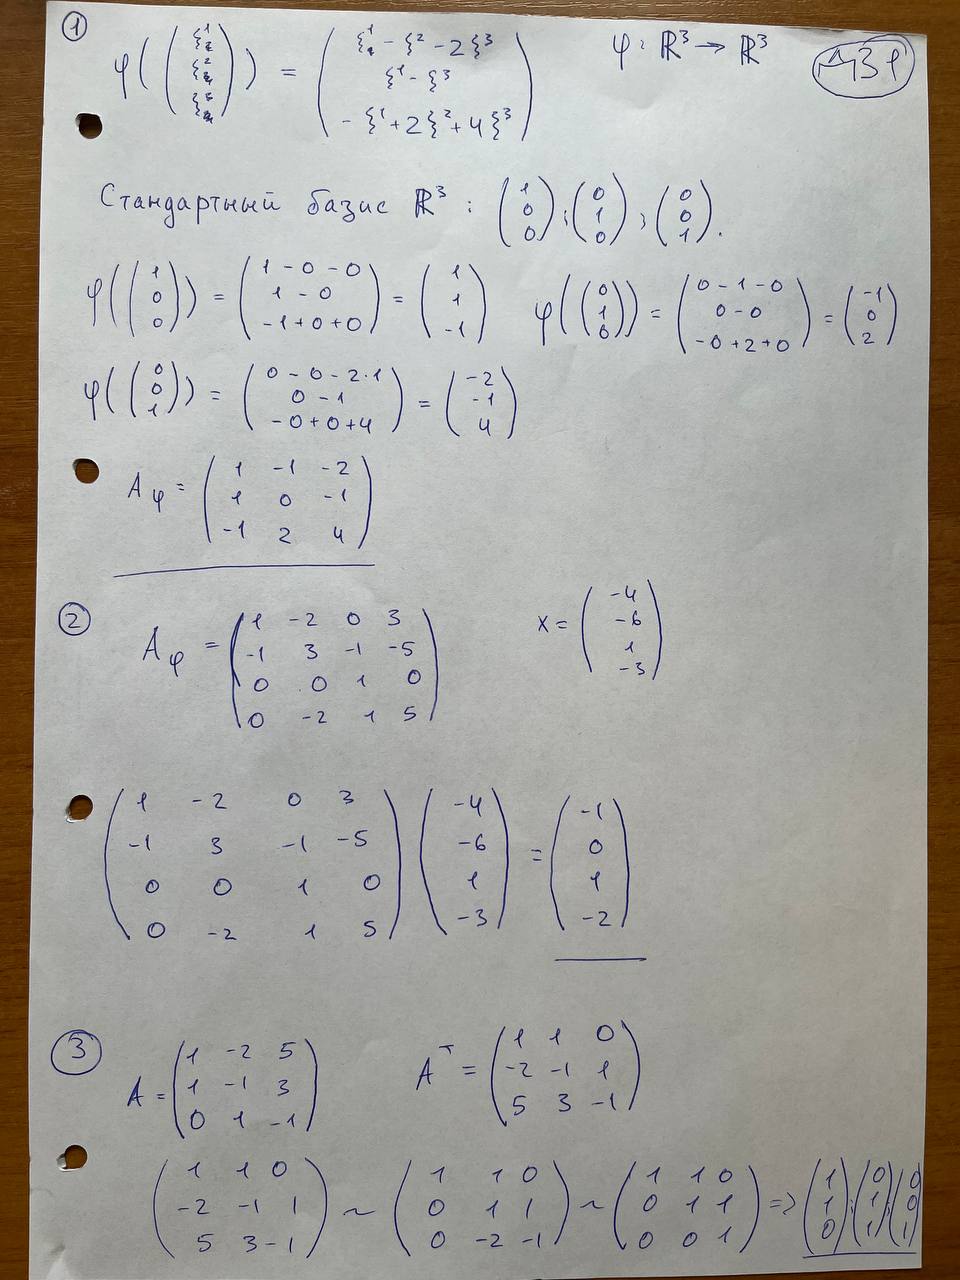 ① φ((ξ¹ ξ² ξ³)) = (ξ¹ - ξ² - 2ξ³ ; ξ¹ - ξ³ ; -ξ¹ + 2ξ² + 4ξ³) φ: ℝ³ → ℝ³
Стандартный базис ℝ³ : (1 0 0); (0 1 0); (0 0 1).
φ((1 0 0)) = (1 - 0 - 0 ; 1 - 0 ; -1 + 0 + 0) = (1 1 -1) φ((0 1 0)) = (0 - 1 - 0 ; 0 - 0 ; -0 + 2 + 0) = (-1 0 2)
φ((0 0 1)) = (0 - 0 - 2·1 ; 0 - 1 ; -0 + 0 + 4) = (-2 -1 4)
A φ = (1 -1 -2 ; 1 0 -1 ; -1 2 4)
② A φ = (1 -2 0 3 ; -1 3 -1 -5 ; 0 0 1 0 ; 0 -2 1 5) x = (-4 -6 1 -3)
(1 -2 0 3 ; -1 3 -1 -5 ; 0 0 1 0 ; 0 -2 1 5) (-4 -6 1 -3) = (-1 0 1 -2)
③ A = (1 -2 5 ; 1 -1 3 ; 0 1 -1) Aᵀ = (1 1 0 ; -2 -1 1 ; 5 3 -1)
(1 1 0 ; -2 -1 1 ; 5 3 -1) ~ (1 1 0 ; 0 1 1 ; 0 -2 -1) ~ (1 1 0 ; 0 1 1 ; 0 0 1) => (1 1 0); (0 1 1); (0 0 1)